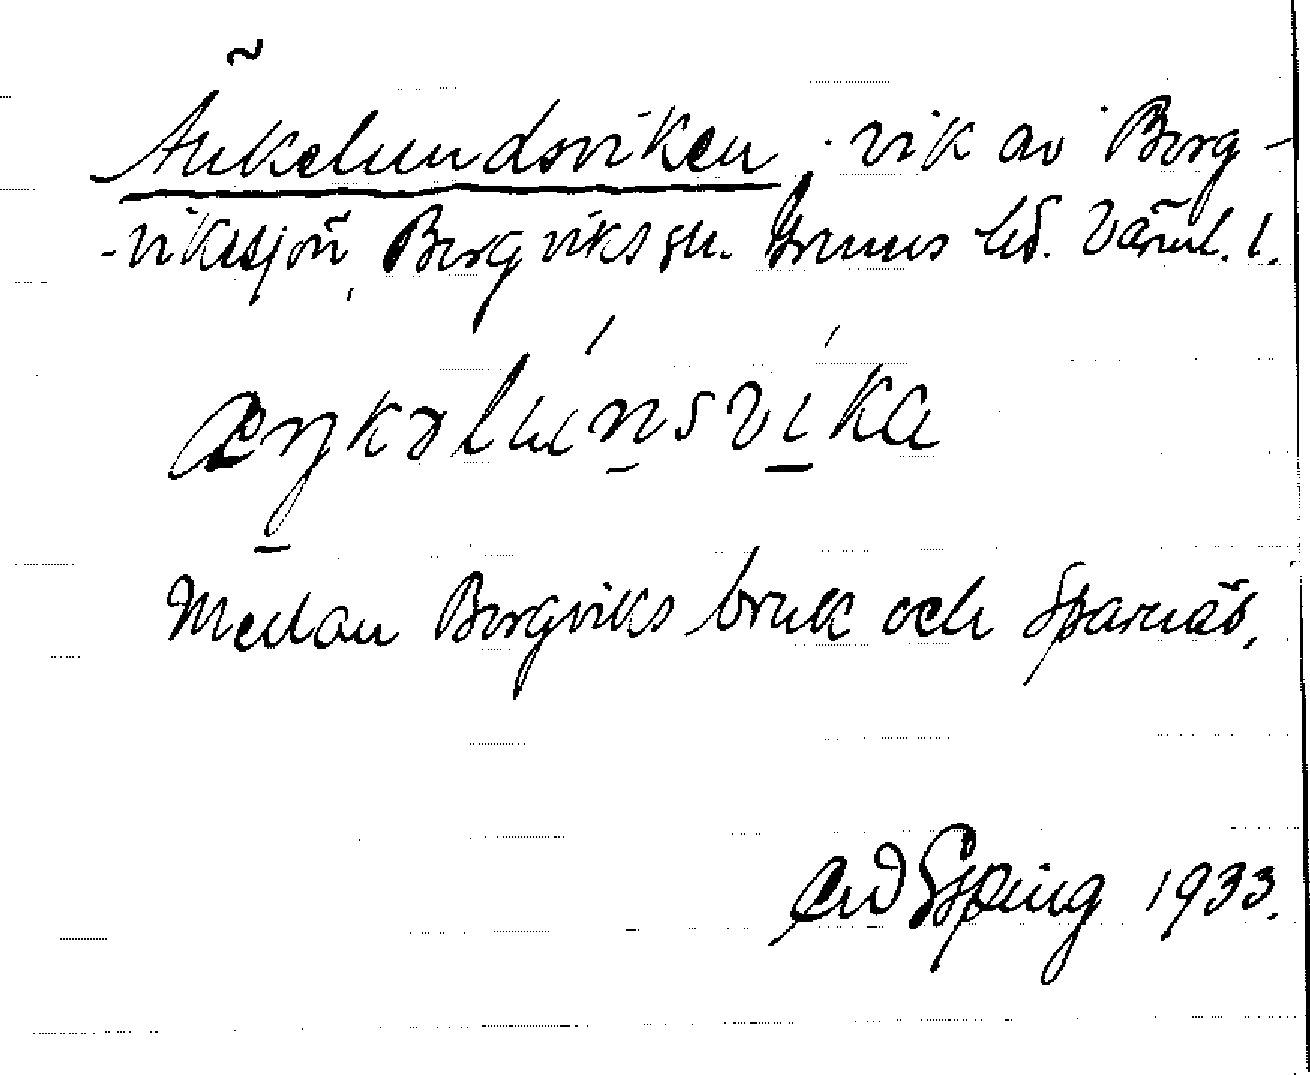 Änkelundsviken, vik av Borg-
-vikssjön, Borgviks sn. Grums hd. Värml. l.
æŋkəlúnsvíka
Medan Borgviks bruk och Sparnäs,
Espling 1933.